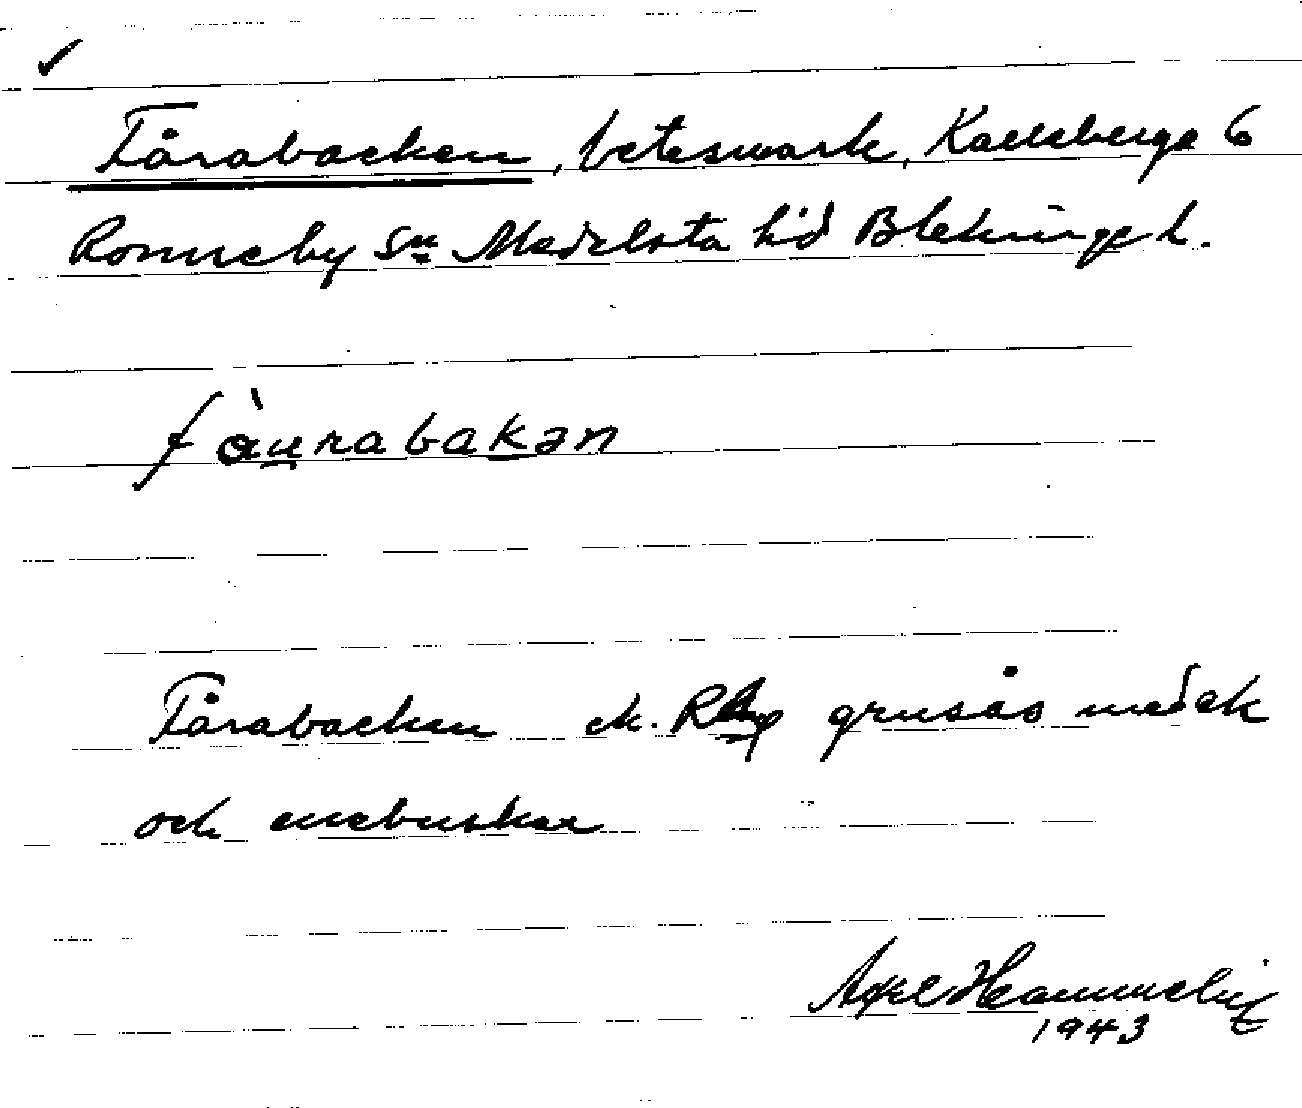 Fårabacken, betesmark, Karlsberga 6
Ronneby Sn Medelsta hd Blekinge l.
fàu̲rabak̲ən
Fårabacken ek. grusås med ek
och enebuskar
Axel Hammelin
1943